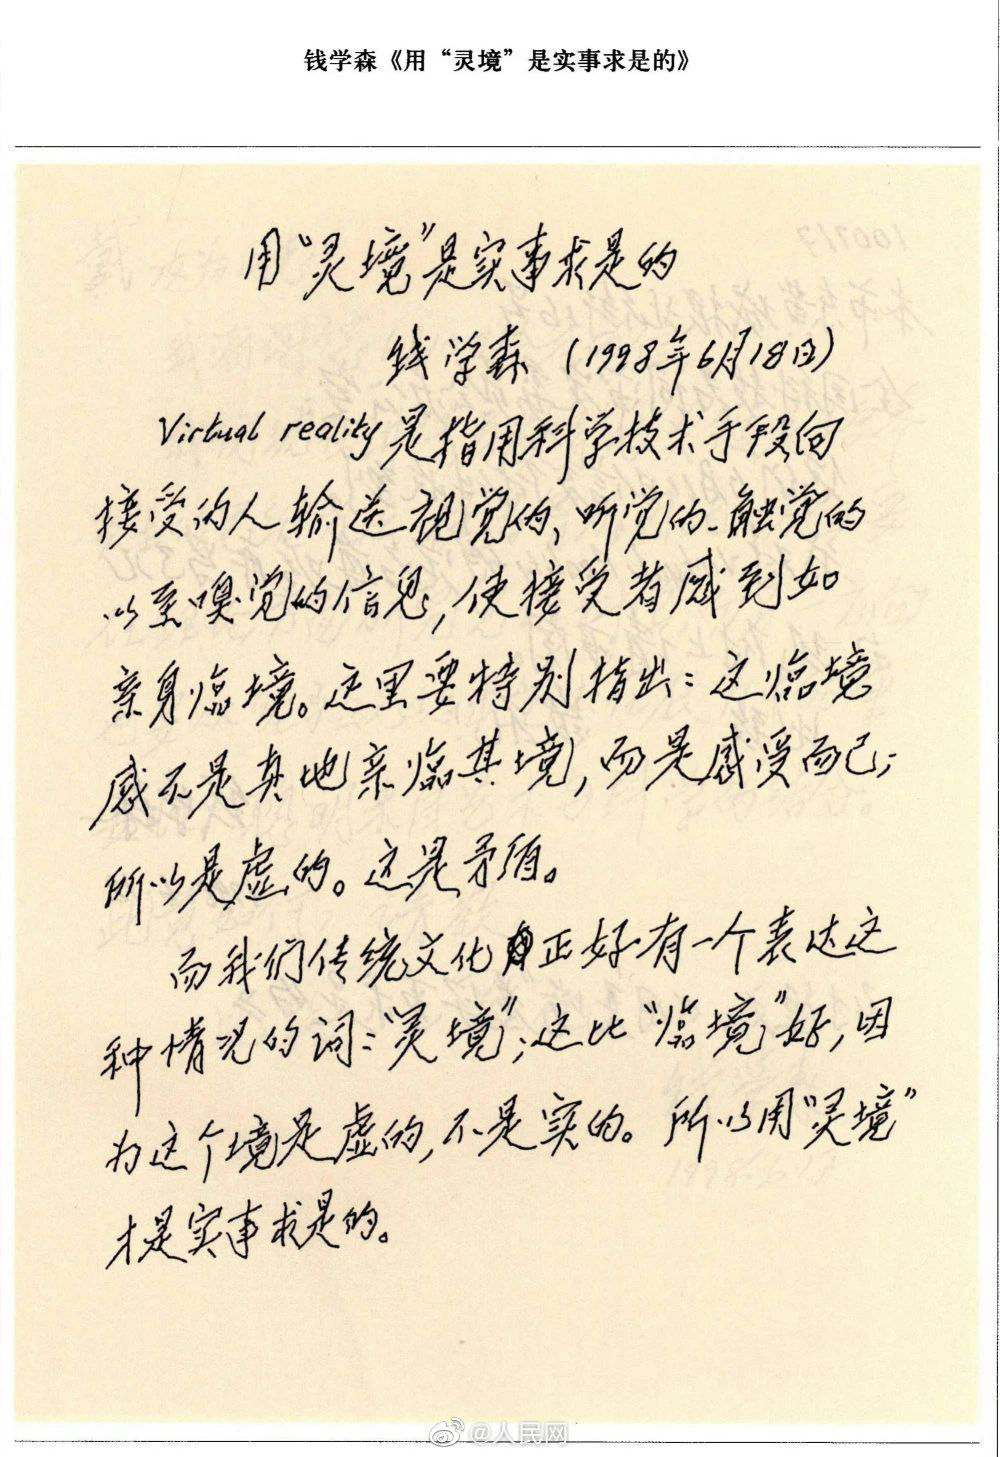 钱学森《用“灵境”是实事求是的》
用“灵境”是实事求是的
钱学森（1998年6月18日）
Virtual reality是指用科学技术手段向
接受的人输送视觉的、听觉的、触觉的
以至嗅觉的信息，使接受者感到如
亲身临境。这里要特别指出：这临境
感不是真地亲临其境，而是感受而已；
所以是虚的。这是矛盾。
而我们传统文化正好有一个表达这
种情况的词：“灵境”；这比“临境”好，因
为这个境是虚的，不是实的。所以用“灵境”
才是实事求是的。
@人民网